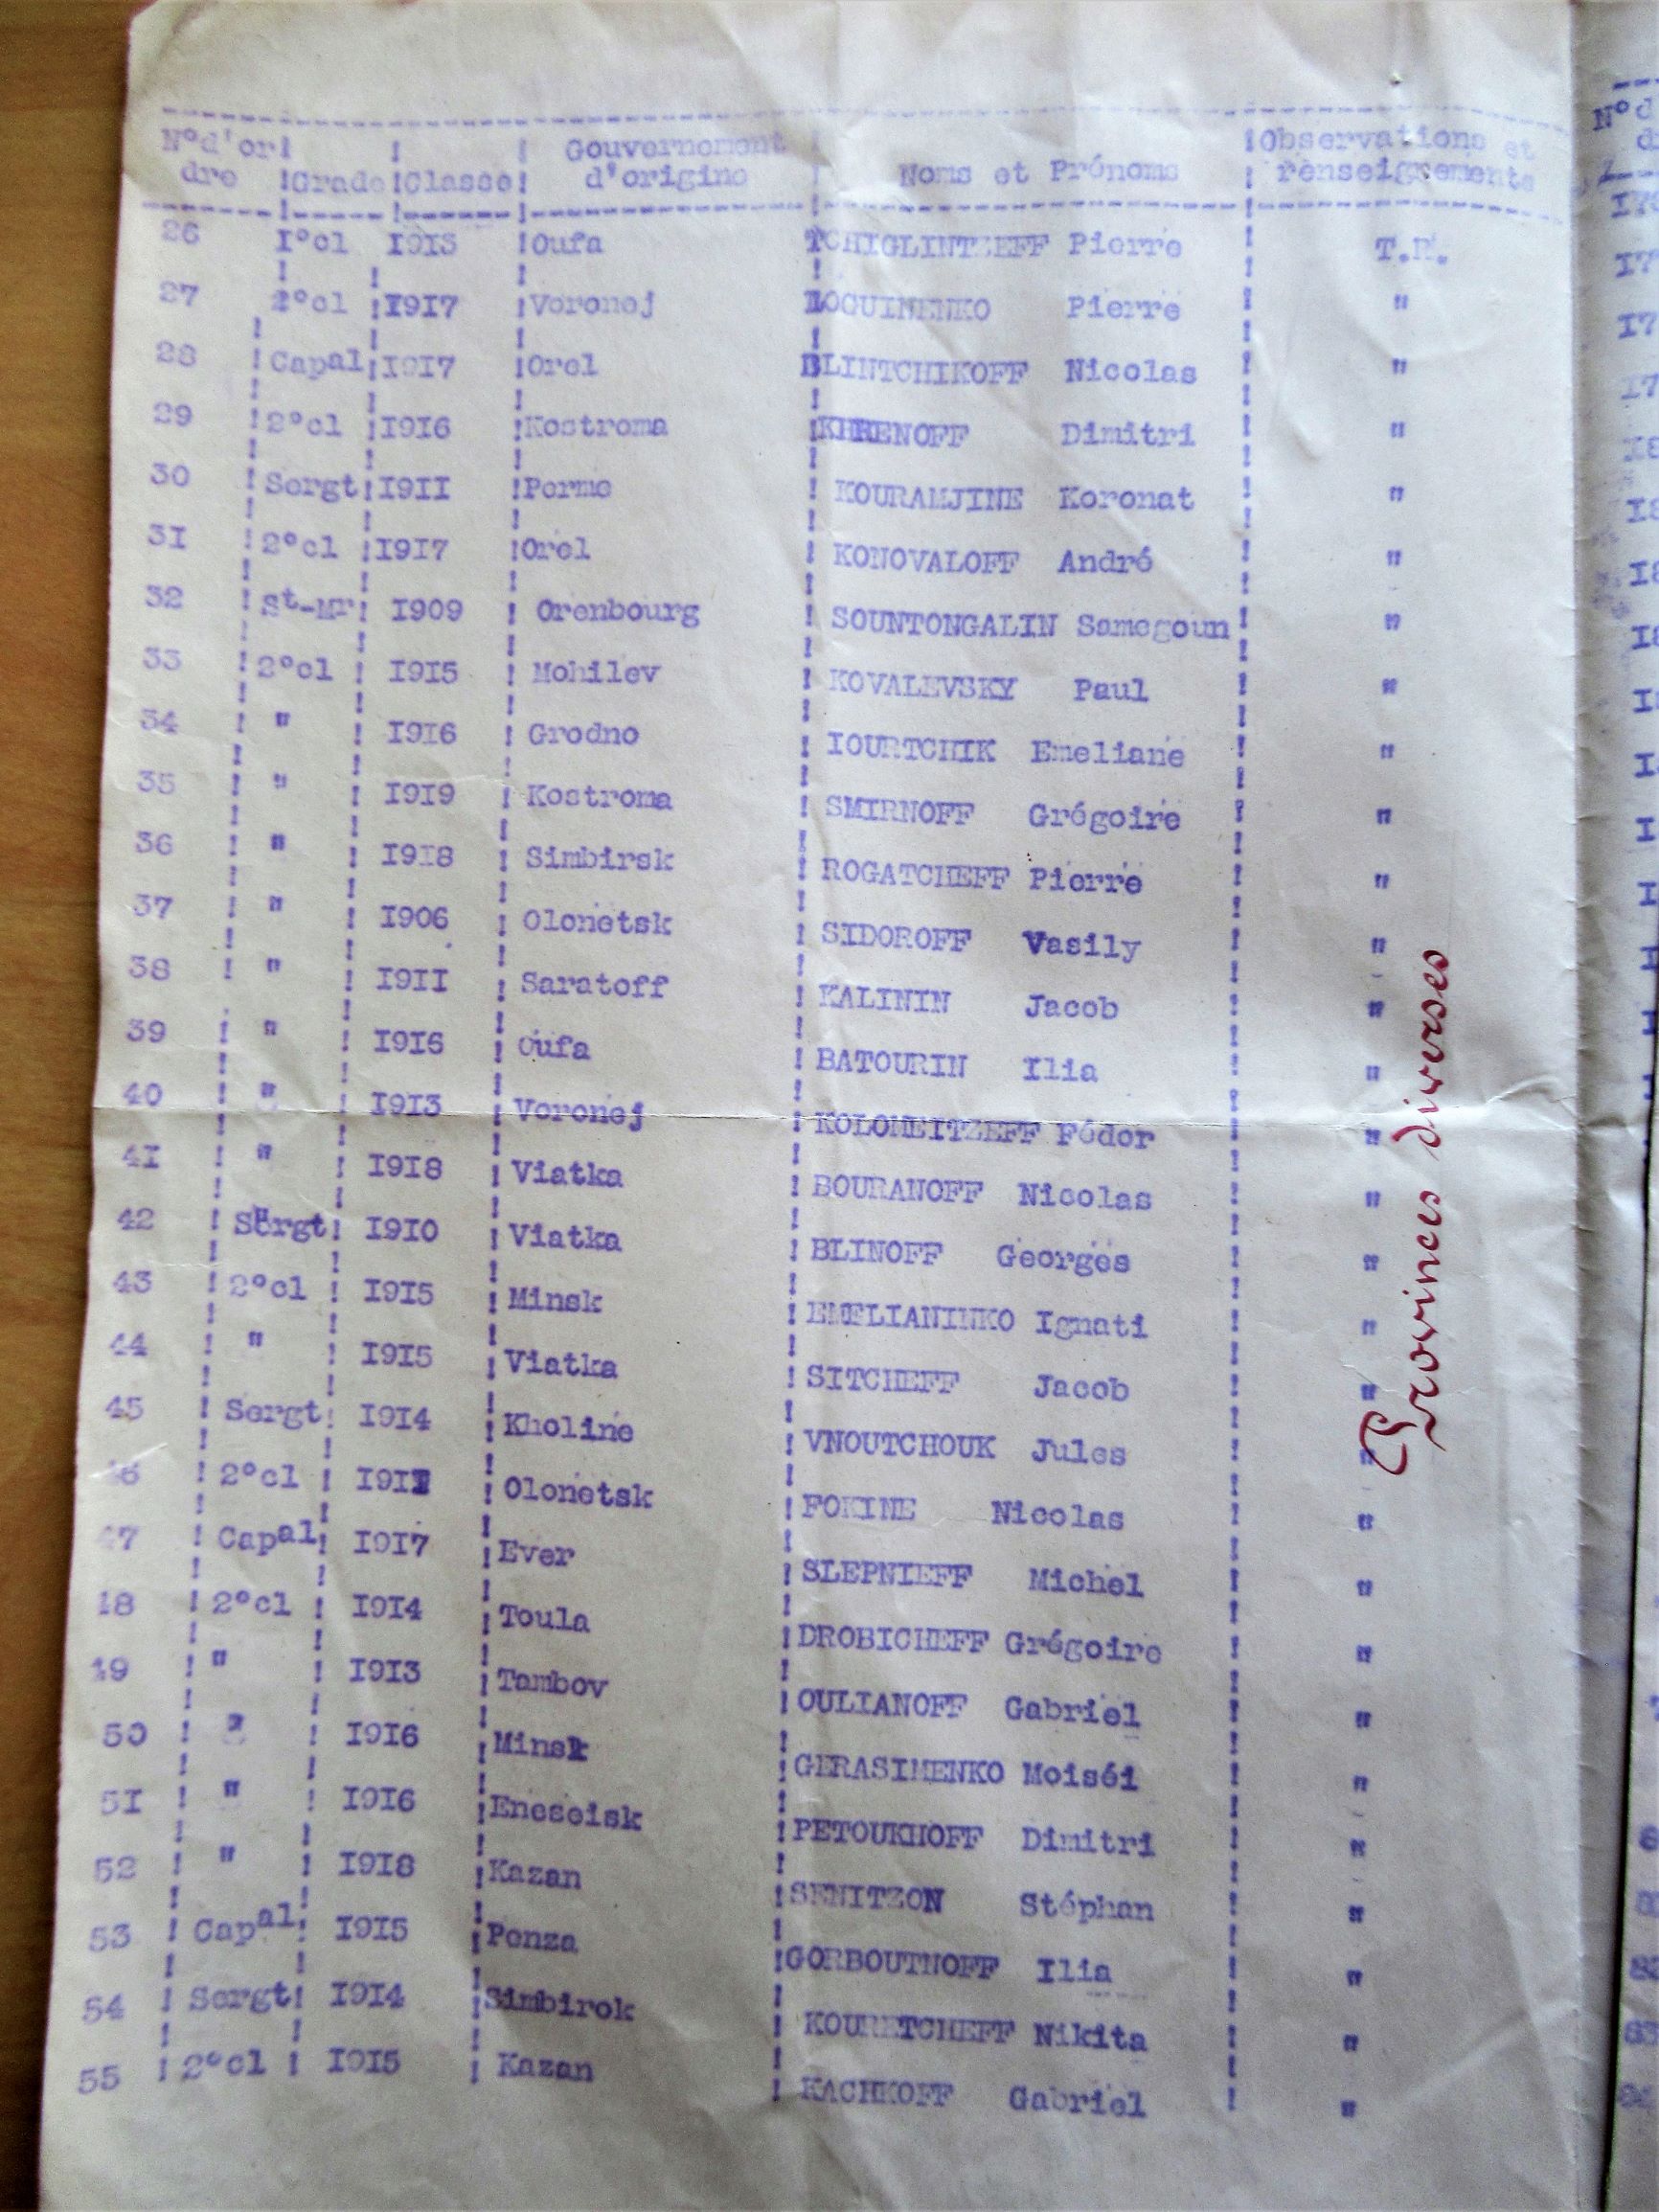 N°d'or! ! ! Gouvernement ! !Observations et
dre !Grade!Classe! d'origine ! Noms et Prénoms ! renseignements
26 I°cl I915 !Oufa TCHIGLINTZEFF Pierre ! T.R.
27 2°cl !I917 !Voronej LOGUINENKO Pierre ! "
28 !Capal!I917 !Orel BLINTCHIKOFF Nicolas ! "
29 !2°cl !I916 !Kostroma !KHRENOFF Dimitri ! "
30 !Sergt!I9II !Perme ! KOURAMJINE Koronat ! "
3I !2°cl !I917 !Orel ! KONOVALOFF André ! "
32 !St-Mr! I909 ! Orenbourg ! SOUNTONGALIN Samegoun! "
33 !2°cl ! I9I5 ! Mohilev ! KOVALEVSKY Paul ! "
34 ! " ! I9I6 ! Grodno ! IOURTCHIK Emeliane ! "
35 ! " ! I9I9 ! Kostroma ! SMIRNOFF Grégoire ! "
36 ! " ! I9I8 ! Simbirsk ! ROGATCHEFF Pierre ! "
37 ! " ! I906 ! Olonetsk ! SIDOROFF Vasily ! "
38 ! " ! I9II ! Saratoff ! KALININ Jacob ! "
39 ! " ! I9I6 ! Oufa ! BATOURIN Ilia ! "
40 ! " ! I9I3 ! Voronej ! KOLOMEITZEFF Fédor ! "
4I ! " ! I9I8 ! Viatka ! BOURANOFF Nicolas ! "
42 ! Sergt! I9I0 ! Viatka ! BLINOFF Georges ! "
43 ! 2°cl ! I9I5 ! Minsk ! EMELIANINKO Ignati ! "
44 ! " ! I9I5 ! Viatka ! SITCHEFF Jacob ! "
45 ! Sergt! I9I4 ! Kholine ! VNOUTCHOUK Jules ! "
46 ! 2°cl ! ! Olonetsk ! FOKINE Nicolas ! "
47 ! Capal! I9I7 ! Ever ! SLEPNIEFF Michel ! "
48 ! 2°cl ! I9I4 ! Toula ! DROBICHEFF Grégoire ! "
49 ! " ! I9I3 ! Tambov ! OULIANOFF Gabriel ! "
50 ! " ! I9I6 ! Minsk ! GERASIMENKO Moiséi ! "
5I ! " ! I9I6 ! Eneseisk ! PETOUKHOFF Dimitri ! "
52 ! " ! I9I8 ! Kazan ! SENITZON Stéphan ! "
53 ! Capal! I9I5 ! Penza !GORBOUTNOFF Ilia ! "
54 ! Sergt! I9I4 !Simbirok ! KOURETCHEFF Nikita ! "
55 ! 2°cl ! I9I5 ! Kazan ! KACHKOFF Gabriel ! "
Provinces diverses